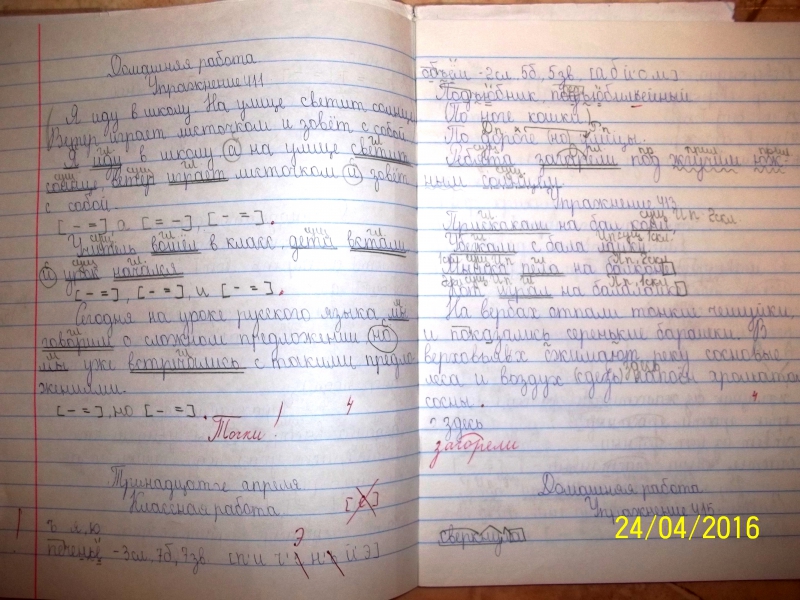 Домашняя работа
Упражнение 411
Я иду в школу На улице светит солнце
Ветер играет листочком и зовёт с собой
Я иду в школу а на улице светит
солнце, ветер играет листочком и зовёт
с собой
[- =] а [= -], [- =].
Учитель вошёл в класс дети встали
и урок начался
[- =], [- =], и [- =].
Сегодня на уроке русского языка мы
говорим о сложном предложении но
мы уже встречались с такими предло
жениями.
[- =], но [- =].
Точки!
4
Тринадцатое апреля
Классная работа
ь я, ю
- 3сл, 7б, 7зв
- 2сл. 5б, 5зв.
По ноге кошка
По дороге на
Ребята загорели под жгучим юж-
ным солнцем
Упражнение 413
Прискакали на бал кони
Убежали с бала
на балкон
на балалайке
На вербах отпали тонкие чешуйки
и показались серенькие барашки. В
верховьях сжимают реку сосновые
леса и воздух здесь
сосны.
4
здесь
загорели
Домашняя работа
Упражнение 415
24/04/2016